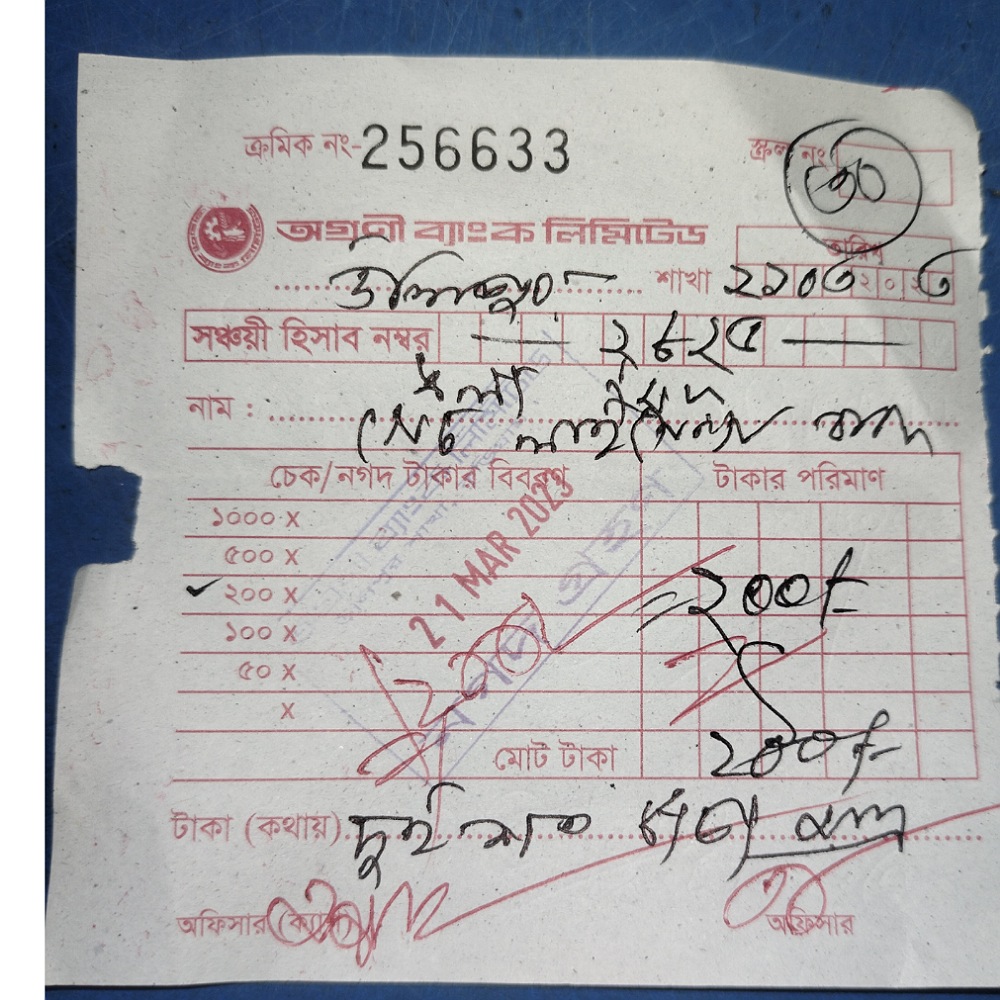 ক্রমিক নং-256633
স্ক্রল নং ৩০
অগ্রণী ব্যাংক লিমিটেড
তারিখ
উলিপুর শাখা ২১০৩২০ ৩
সঞ্চয়ী হিসাব নম্বর ২৮২৫
নাম :
চেক/নগদ টাকার বিবরণ টাকার পরিমাণ
১০০০ x
৫০০ x
২০০ x = ২০০/-
১০০ x
৫০ x
x
21 MAR 2023
গ্রহণ
মোট টাকা ২০০/-
টাকা (কথায়) দুই শত টাকা মাত্র
অফিসার (ক্যাশ) অফিসার